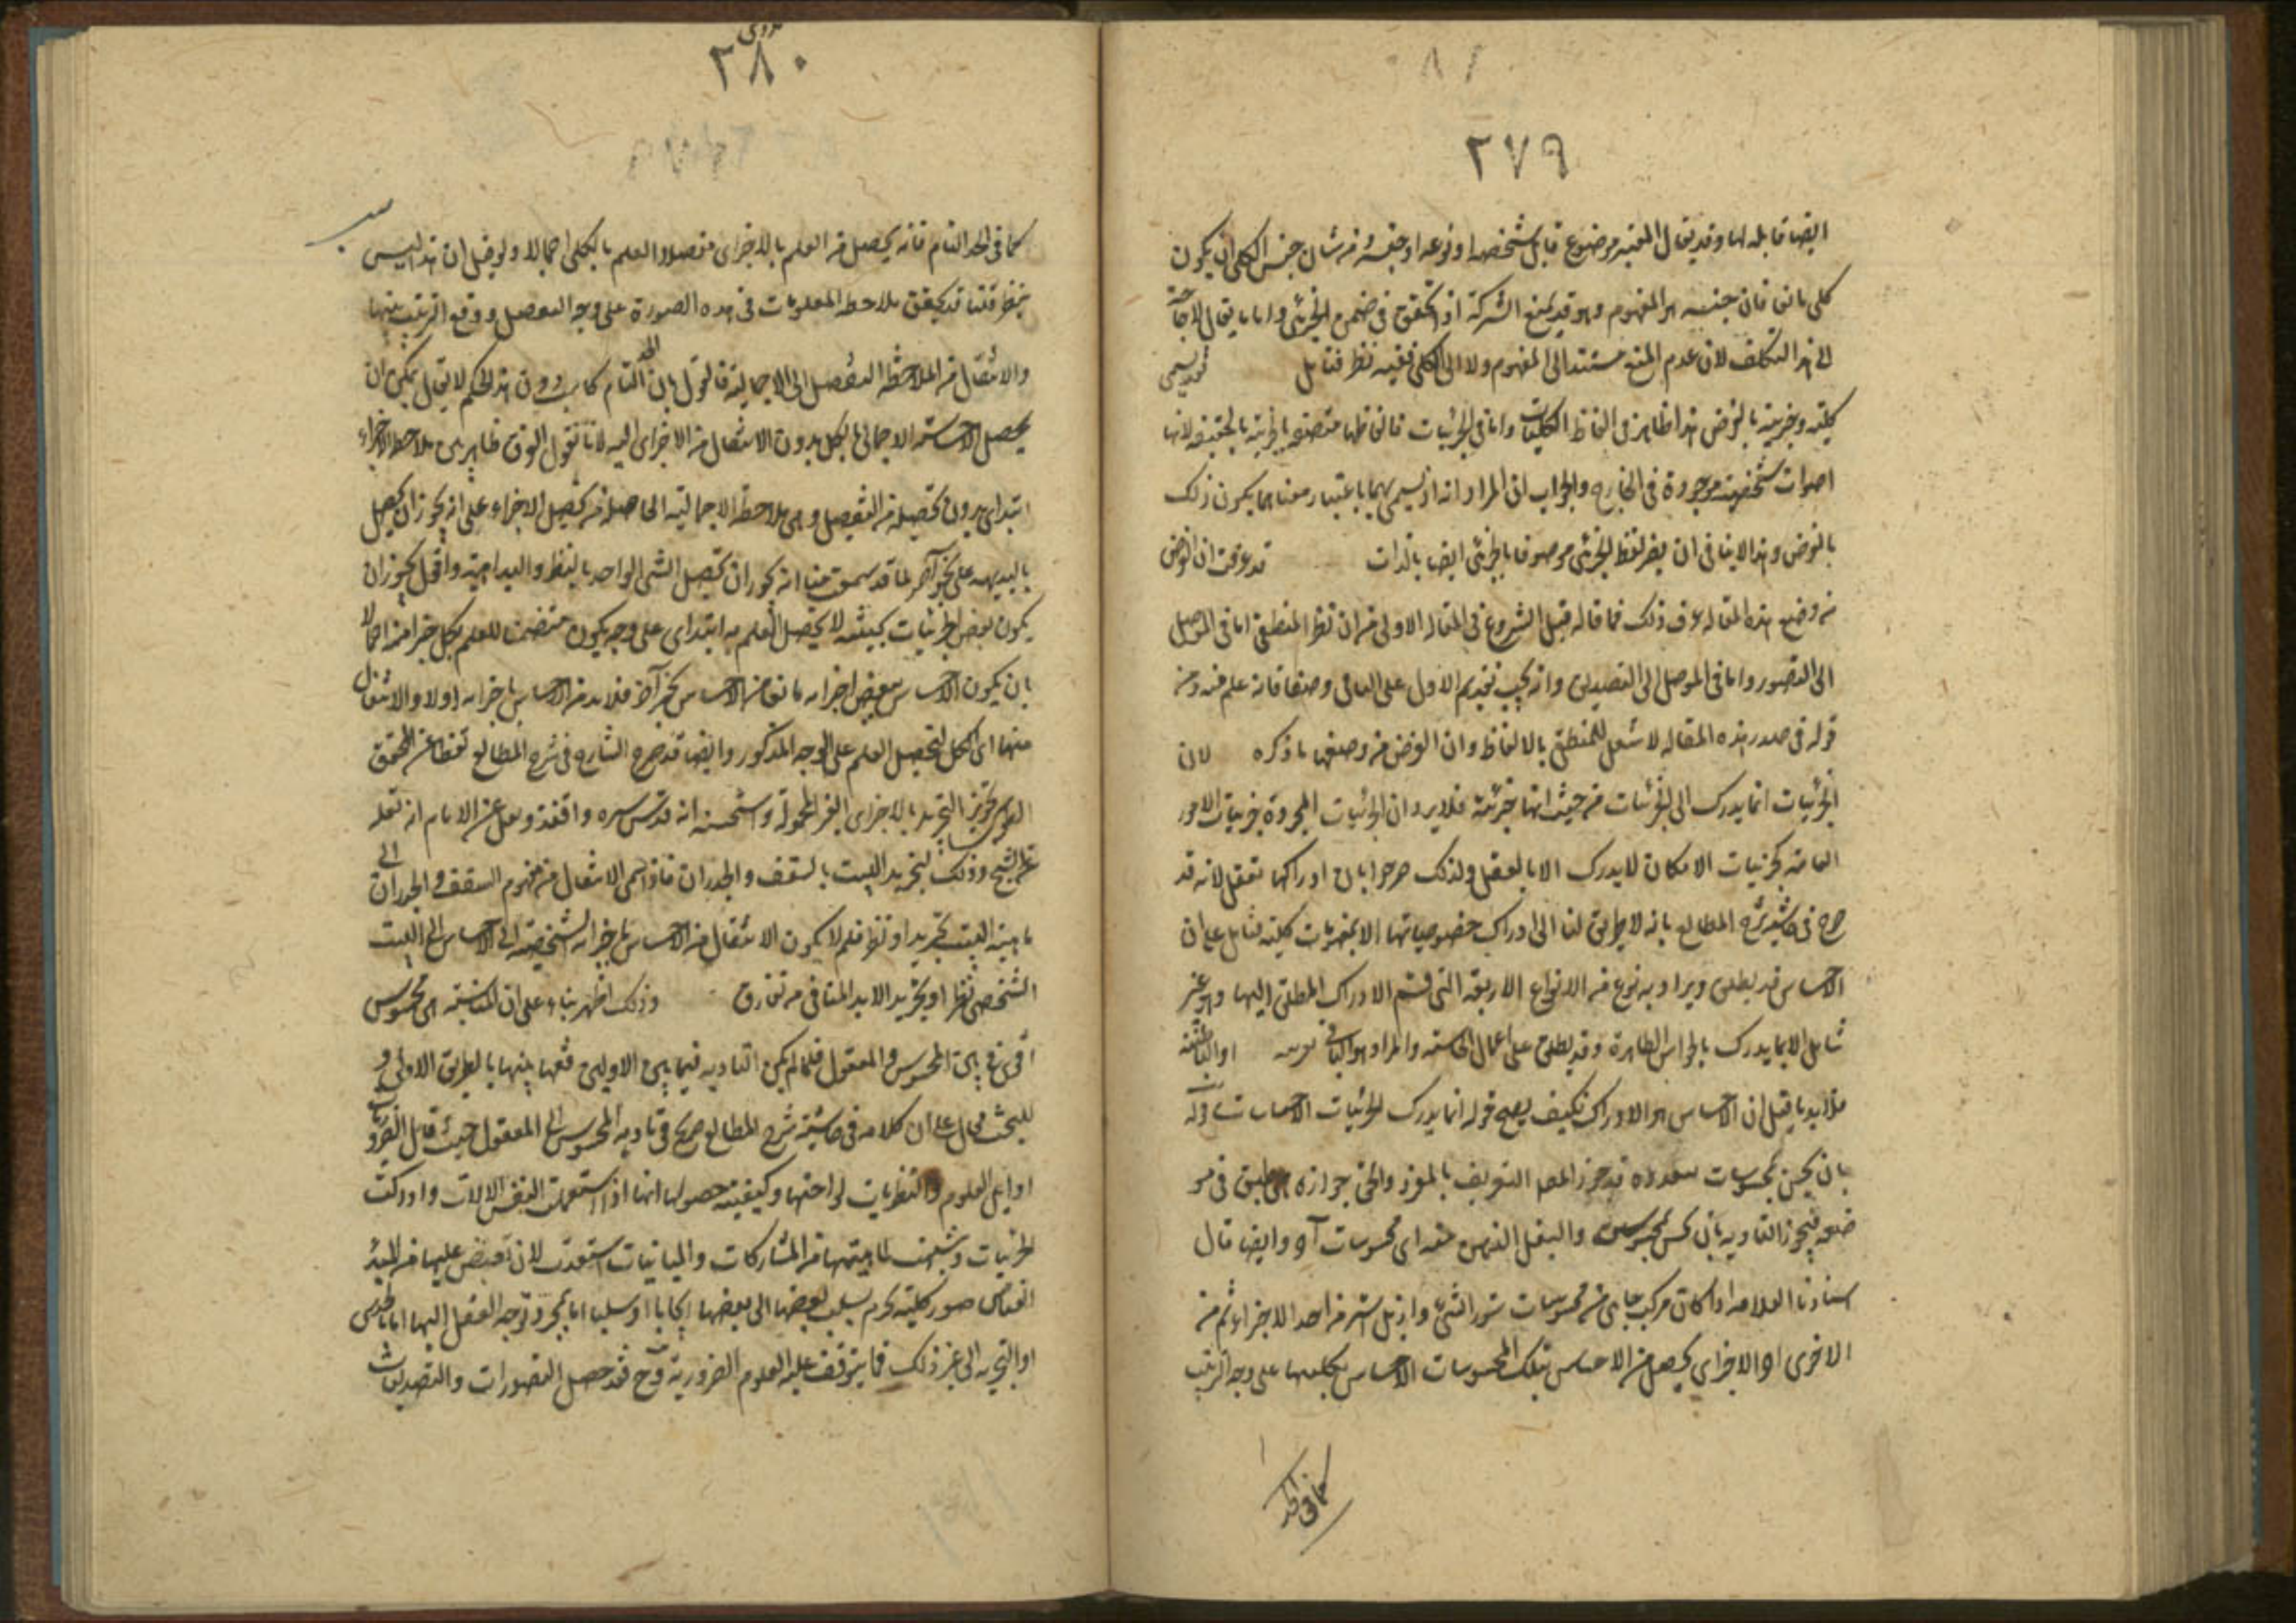 ٢٧٩
ايضا قابله لها وقد يقال المعتبر موضوع قابل بشخصه او نوعه او جنسه ومن شان جنس الكلي ان يكون
كلي مانعا فان جنسه هو المفهوم وهو قد يمنع الشركة اذ تحقق في ضمن الجزئي واما ما يقال لا حاجة
الى هذا التكلف لان عدم المنع مستند الى المفهوم ولا الى الكلي ففيه نظر فتامل
كلية وجزئية بالعرض هذا ظاهر في الفاظ الكليات واما في الجزئيات فالفاظها متصفة بالجزئية بالحقيقة لانها
اصوات شخصية موجودة في الخارج والجواب ان المراد انه اذ يسمى بهما باعتبار معناهما يكون ذلك
بالعرض وهذا لا ينافي ان لفظ الجزئي موصوفا بالجزئي ايضا بالذات قد عرفت ان الغرض
من وضع هذه المقاله عرف ذلك مما قاله قبل الشروع في المقاله الاولى من ان نظر المنطقي اما في الموصل
الى التصور واما في الموصل الى التصديق وانه يجب تقديم الاول على الثاني وضعا فانه علم منه ومن
قوله في صدر هذه المقاله لا شغل للمنطقي بالالفاظ وان الغرض من وضعها ما ذكره لان
الجزئيات انما يدرك الى الجزئيات من حيث انها جزئية فلا يرد ان الجزئيات المجردة جزئيات الامور
العامة كجزئيات الامكان لا يدرك الا بالعقل ولذلك صرحوا بان ادراكها تعقل لانه قد
صرح في حاشية شرح المطالع بانه لا طريق لنا الى ادراك خصوصياتها الا بمفهومات كلية فتامل على ان
الاحساس قد يطلق ويراد به نوع من الانواع الاربعة التي قسم الادراك المطلق اليها وهو غير
شامل الا بما يدرك بالحواس الظاهرة وقد يطلق على اعمال الحاسة والمراد هو الثاني
فلا يرد ما قيل ان الاحساس هو الادراك فكيف يصح قوله انما يدرك الجزئيات بالاحساسات قوله
بان يحس بمحسوسات متعددة قد جوز المصـ التعريف بالمفرد والحق جوازه
فيجوز التادية بان يحس بمحسوس والينقل الذهن منه اى محسوسات آه وايضا قال
استادنا العلامه اذا كان مركب ما من محسوسات احد الاجزاء ثم من
الاخرى او الاجزاى يحصل من الاحساس بتلك المحسوسات الاحساس بكليها على وجه الترتيب
كما في الحد
٢٨٠
كما في الحد التام فانه يحصل من العلم بالاجزاى مفصلا والعلم بالكلى اجمالا ولو قيل ان هذا ليس
بنظر قلنا قد يتحقق ملاحظه المعلومات في هذه الصورة على وجه التفصيل ووقع الترتيب بينها
والانتقال من الملاحظة التفصيل الى الاجمالية فالقول بان الحد التام كاسب دون هذا تحكم لا يقال يمكن ان
يحصل الاحساسه الاجمالى بالكل بدون الانتقال من الاجزاى اليه لانا نقول الفرق ظاهر بين ملاحظه الاجزاء
ابتداى بدون تحصيله من التفصيل وبين ملاحظة الاجمالية الحاصله من تحصيل الاجزاء على انه يجوز ان يحصل
بالبديهه على نحو آخر لما قد سمعت منا انه يجوز ان تحصيل الشي الواحد بالنظر والبداهية واقول يجوز ان
يكون بعض الجزئيات بحيث لا يحصل العلم به ابتداى على وجه يكون متضمنا للعلم بكل جزء منه اجمالا
بان يكون الاحساس ببعض اجزايه مانعا من الاحساس بجزء آخر فلا بد من الاحساس باجزايه اولا والانتقال
منها الى الكل لتحصيل العلم على الوجه المذكور وايضا قد صرح الشارح في شرح المطالع نقلا عن المحقق
الطوسي تجويز التحديد بالاجزاى الغير المحمولة واستحسنه انه قدس سره وافقه ونقل عن الامام انه نقله
عن الشيخ وذلك لتحديد البيت بالسقف والجدران فاذا سمى الانتقال من مفهوم السقف والجدران الى
ماهية البيت تحديد او نظر فلم لا يكون الانتقال من الاحساس باجزايه الشخصية الى الاحساس الى البيت
الشخصي نظرا وتحديد الا بد المنافى من تفارق وذلك اظهر بناء على ان المناسبة بين محسوس
اقوى من بين المحسوس والمعقول فلما لم يمكن التادية فيما بين الاوليين فبينهما بالطريق الاولى و
للبحث مجال على ان كلامه في حاشية شرح المطالع صريح في تادية المحسوس الى المعقول حيث قال
اوايل العلوم والنظريات لواحقها وكيفية حصولها انها اذا استعملت النفس الالات وادركت
الجزئيات وتنبهت لما بينهما من المشاركات والمباينات استعدت لان تفيض عليها من المبدء
الفياض صور كلية نحكم بنسبة بعضها الى بعضها ايجابا او سلبا اما بمجرد توجه العقل اليها اما بالحدس
او التجربه الى غير ذلك مما يتوقف عليه العلوم الضرورية وح قد حصل التصورات والتصديقات